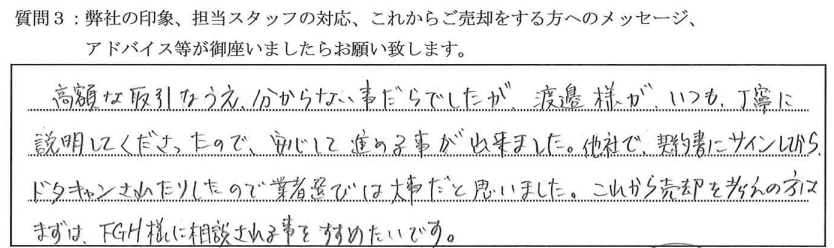 質問３：弊社の印象、担当スタッフの対応、これからご売却をする方へのメッセージ、
アドバイス等が御座いましたらお願い致します。
高額な取引なうえ、分からない事だらでしたが、渡邉様が、いつも、丁寧に
説明してくださったので、安心して進める事が出来ました。他社で、契約書にサインしてから、
ドタキャンされたりしたので業者選びは大事だと思いました。これから売却を考えの方は
まずは、FGH様に相談される事をすすめたいです。